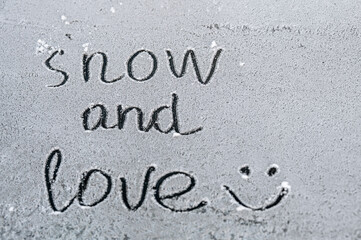 snow
and
love